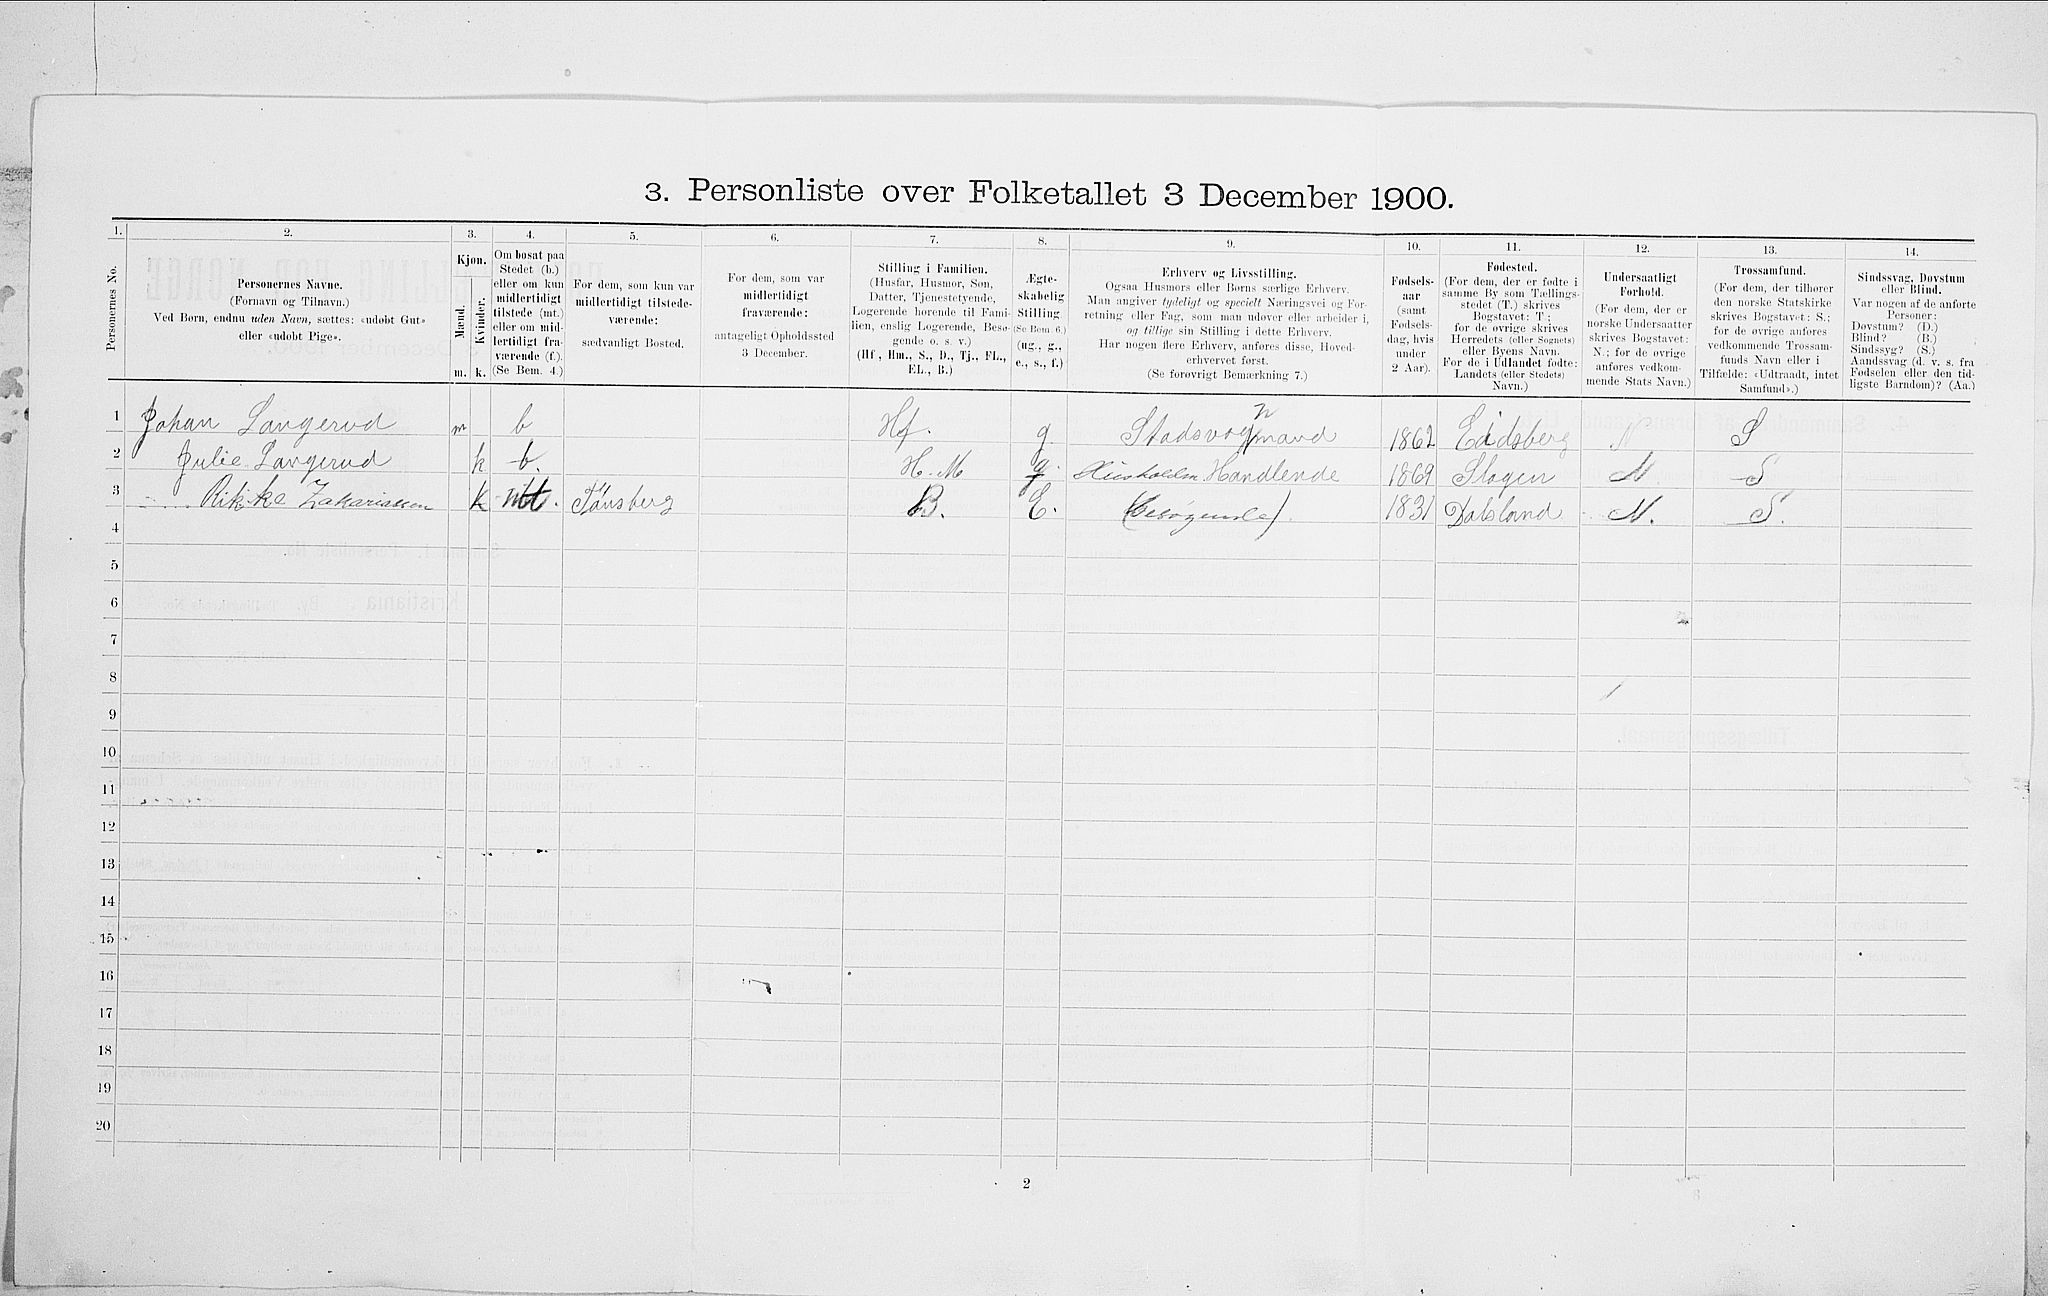 3. Personliste over Folketallet 3 December 1900.
1. 2. 3. 4. 5. 6. 7. 8. 9. 10. 11. 12. 13. 14.
Personernes No.
Personernes Navne.
(Fornavn og Tilnavn.)
Ved Børn, endnu uden Navn, sættes: «udøbt Gut»
eller «udøbt Pige».
Kjøn.
Mænd.
Kvinder.
m. k.
Om bosat paa
Stedet (b.)
eller om kun
midlertidigt
tilstede (mt.)
eller om mid-
lertidigt fra-
værende (f.).
(Se Bem. 4.)
For dem, som kun var
midlertidigt tilstede-
værende:
sædvanligt Bosted.
For dem, som var
midlertidigt
fraværende:
antageligt Opholdssted
3 December.
Stilling i Familien.
(Husfar, Husmor, Søn,
Datter, Tjenestetyende,
Logerende hørende til Fami-
lien, enslig Logerende, Besø-
gende o. s. v.)
(Hf., Hm., S., D., Tj., FL.,
EL., B.)
Ægte-
skabelig
Stilling.
(Se Bem. 6.)
(ug., g.,
e., s., f.)
Erhverv og Livsstilling.
Ogsaa Husmors eller Børns særlige Erhverv.
Man angiver tydeligt og specielt Næringsvei og For-
retning eller Fag, som man udøver eller arbeider i,
og tillige sin Stilling i dette Erhverv.
Har nogen flere Erhverv, anføres disse, Hoved-
erhvervet først.
(Se forøvrigt Bemærkning 7.)
Fødsels-
aar
(samt
Fødsels-
dag, hvis
under
2 Aar).
Fødested.
(For dem, der er fødte i
samme By som Tællings-
stedet (T.) skrives
Bogstavet: T;
for de øvrige skrives
Herredets (eller Sognets)
eller Byens Navn.
For de i Udlandet fødte:
Landets (eller Stedets)
Navn.)
Undersaatligt
Forhold.
(For dem, der er
norske Undersaatter
skrives Bogstavet:
N.; for de øvrige
anføres vedkom-
mende Stats Navn.)
Trossamfund.
(For dem, der tilhører
den norske Statskirke
skrives Bogstavet: S.;
for de øvrige anføres
vedkommende Trossam-
funds Navn eller i
Tilfælde: «Udtraadt, intet
Samfund».)
Sindssvag, Døvstum
eller Blind.
Var nogen af de anførte
Personer:
Døvstum? (D.)
Blind? (B.)
Sindssyg? (S.)
Aandssvag (d. v. s. fra
Fødselen eller den tid-
ligste Barndom)? (Aa.)
1 Johan Langerud m b Hf. g Stadsvognmand 1862 Eidsberg N S
2 Julie Langerud k b. H. M g. Handlende 1869 Slagen N S
3 Rikke Zakariassen k mt. Tønsberg B. E. (besøgende) 1831 Dalsland N. S.
4
5
6
7
8
9
10
11
12
13
14
15
16
17
18
19
20
2